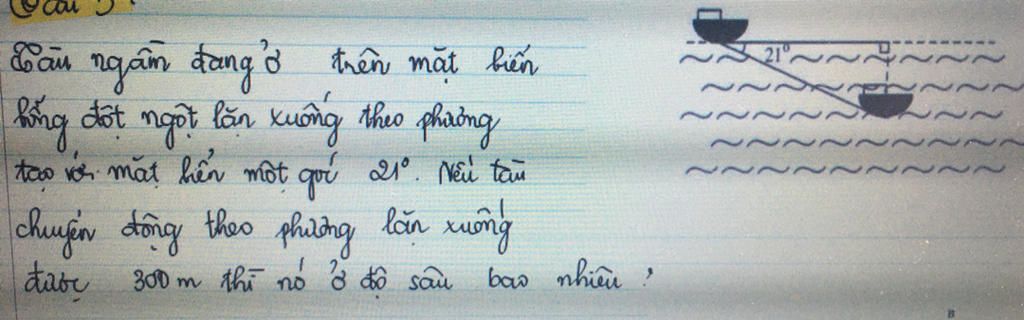 Câu 5:
Tàu ngầm đang ở trên mặt biển
bỗng đột ngột lặn xuống theo phương
tạo với mặt biển một góc 21°. Nếu tàu
chuyển động theo phương lặn xuống
được 300 m thì nó ở độ sâu bao nhiêu?
21°
B